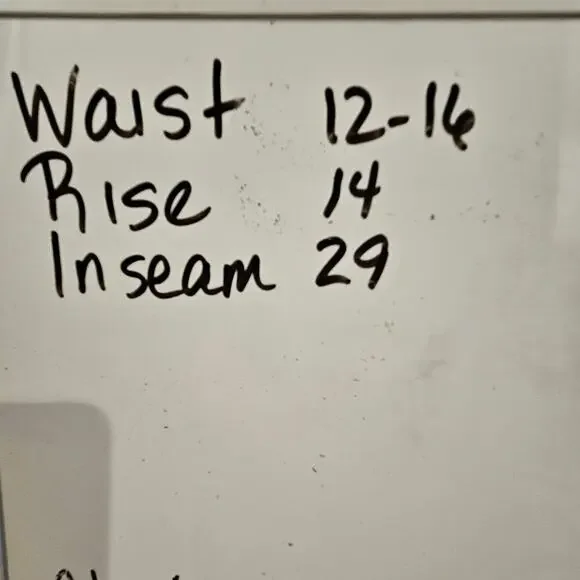 Waist 12-16
Rise 14
Inseam 29